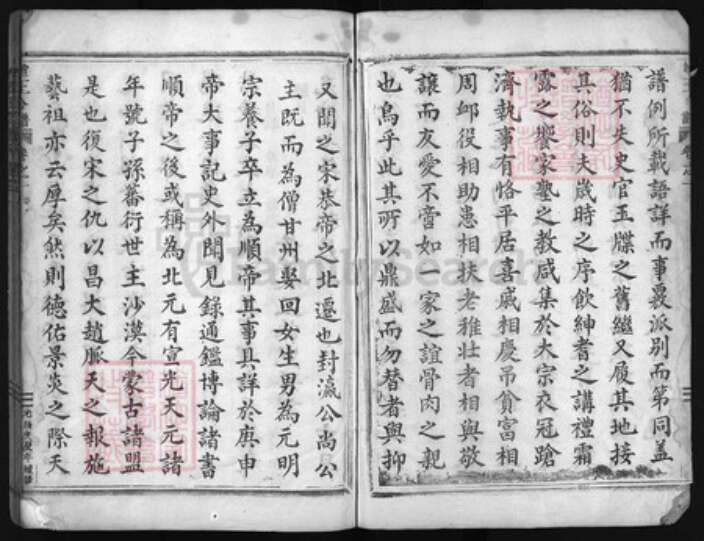 譜例所載語詳而事覈派別而第同蓋
猶不失史官玉牒之舊繼又履其地接
其俗則夫歲時之序飲紳耆之講禮霜
露之饗家塾之教咸集於大宗衣冠蹌
濟執事有恪平居喜戚相慶弔貧富相
周邮役相助患相扶老稚壯者相與敬
讓而友愛不啻如一家之誼骨肉之親
也烏乎此其所以鼎盛而勿替者與抑
又聞之宋恭帝之北遷也封瀛公尚公
主既而為僧甘州娶回女生男為元明
宗養子卒立為順帝其事具詳於庚申
帝大事記史外聞見錄通鑑博論諸書
順帝之後或稱為北元有宣光天元諸
年號子孫蕃衍世主沙漠今蒙古諸盟
是也復宋之仇以昌大趙脈天之報施
藝祖亦云厚矣然則德佑景炎之際天
FamilySearch